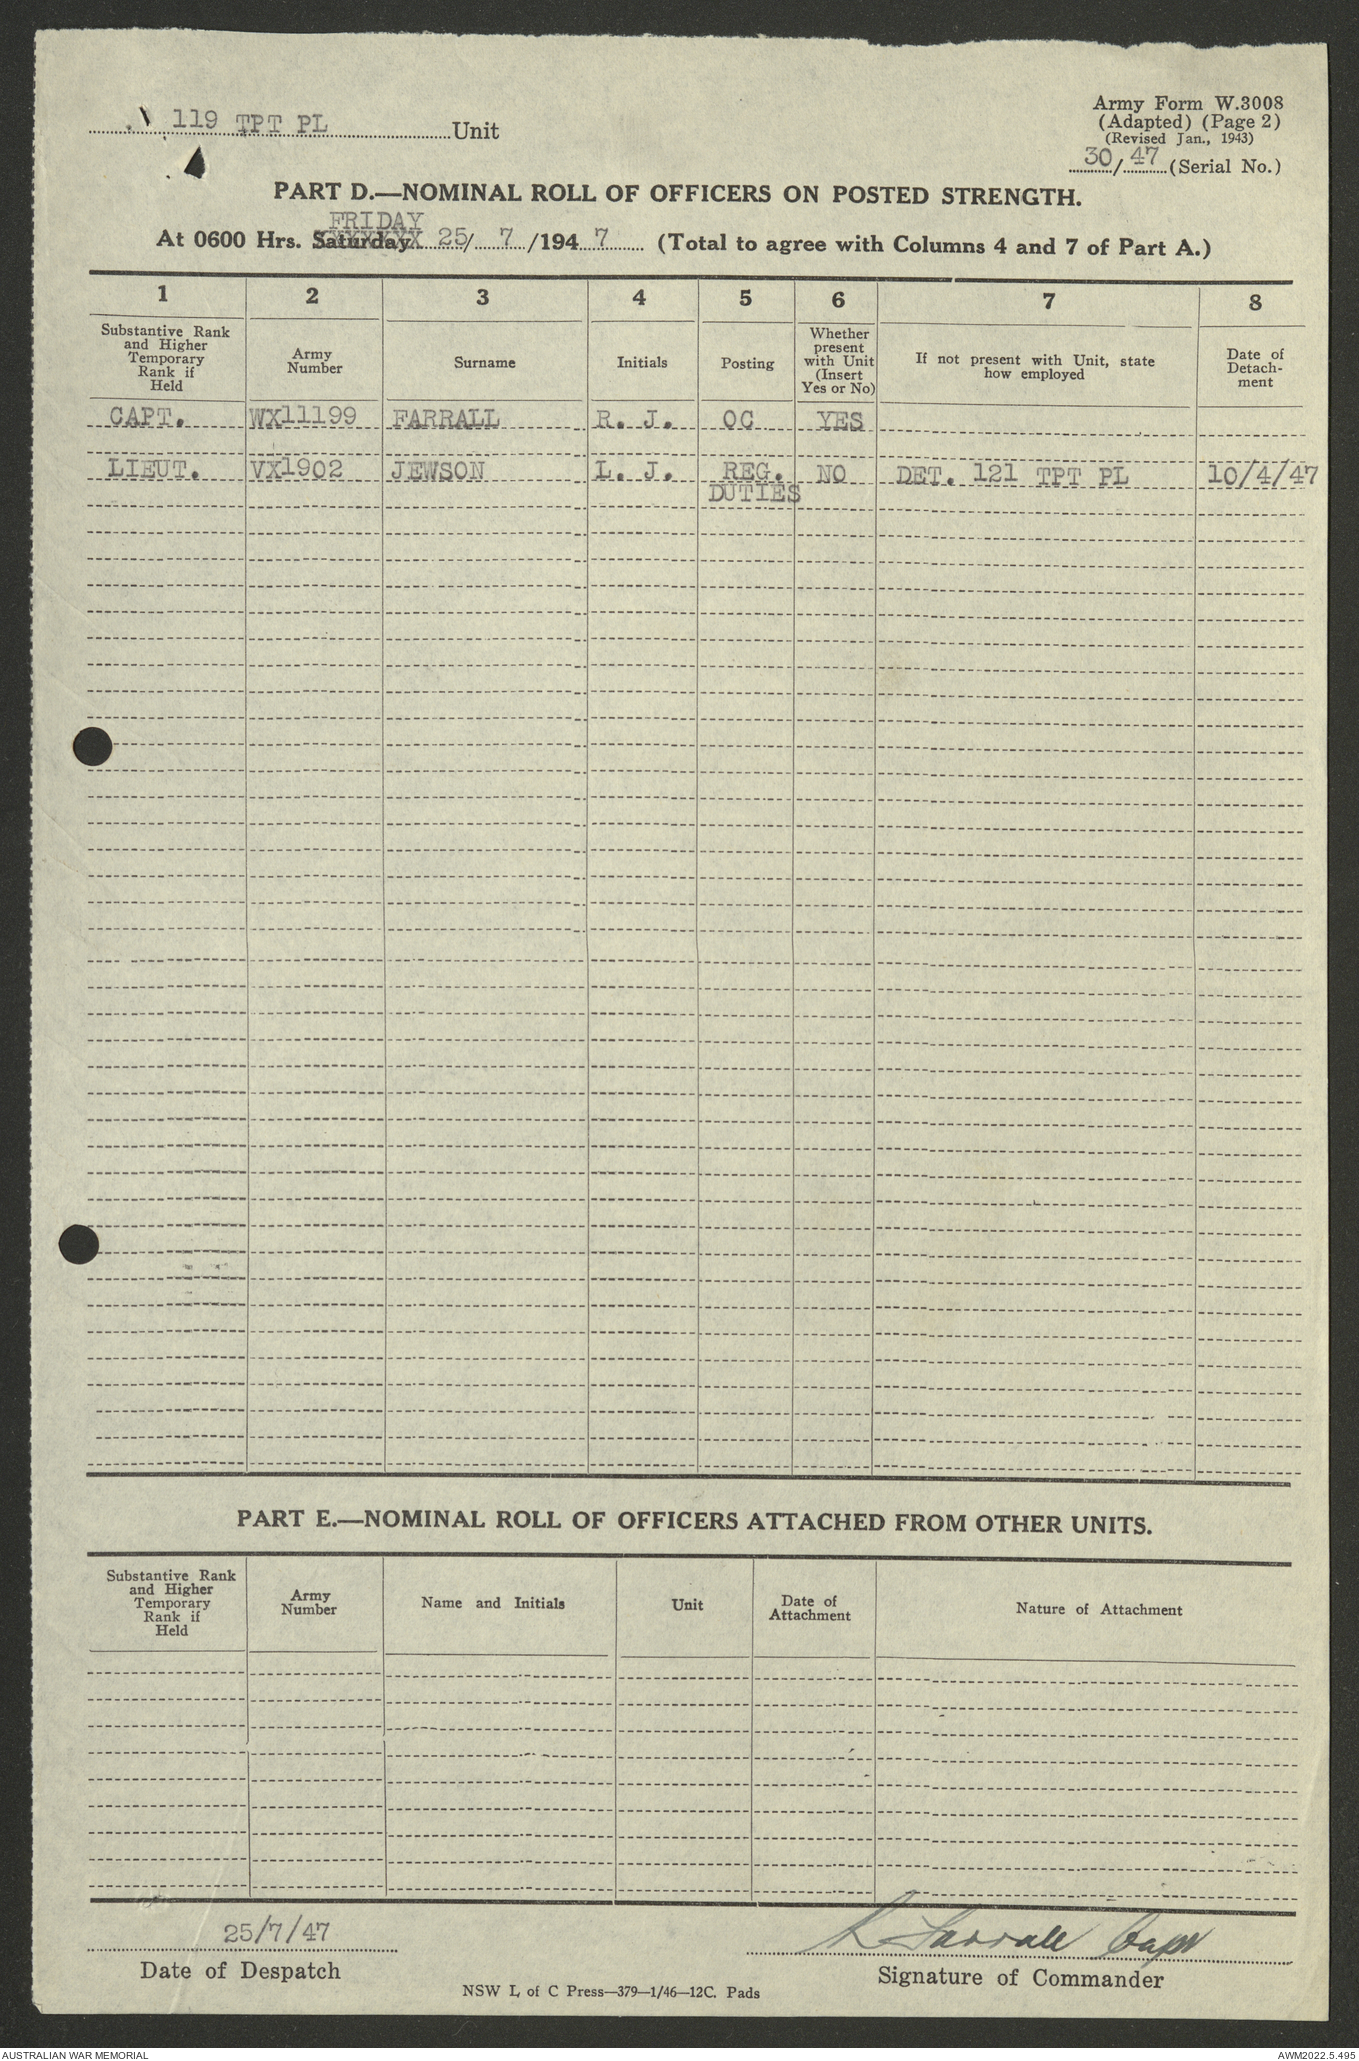 119 TPT PL Unit
Army Form W.3008
(Adapted) (Page 2)
(Revised Jan., 1943)
30/47 (Serial No.)
PART D.—NOMINAL ROLL OF OFFICERS ON POSTED STRENGTH.
FRIDAY
At 0600 Hrs. Saturday 25/ 7 /194 7 (Total to agree with Columns 4 and 7 of Part A.)
1 2 3 4 5 6 7 8
Substantive Rank
and Higher
Temporary
Rank if
Held
Army
Number
Surname
Initials
Posting
Whether
present
with Unit
(Insert
Yes or No)
If not present with Unit, state
how employed
Date of
Detach-
ment
CAPT. WX11199 FARRALL R. J. OC YES
LIEUT. VX1902 JEWSON L. J. REG. NO DET. 121 TPT PL 10/4/47
DUTIES
PART E.—NOMINAL ROLL OF OFFICERS ATTACHED FROM OTHER UNITS.
Substantive Rank
and Higher
Temporary
Rank if
Held
Army
Number
Name and Initials
Unit
Date of
Attachment
Nature of Attachment
25/7/47
Date of Despatch
R Farrall Capt
Signature of Commander
NSW L of C Press—379—1/46—12C. Pads
AUSTRALIAN WAR MEMORIAL
AWM2022.5.495